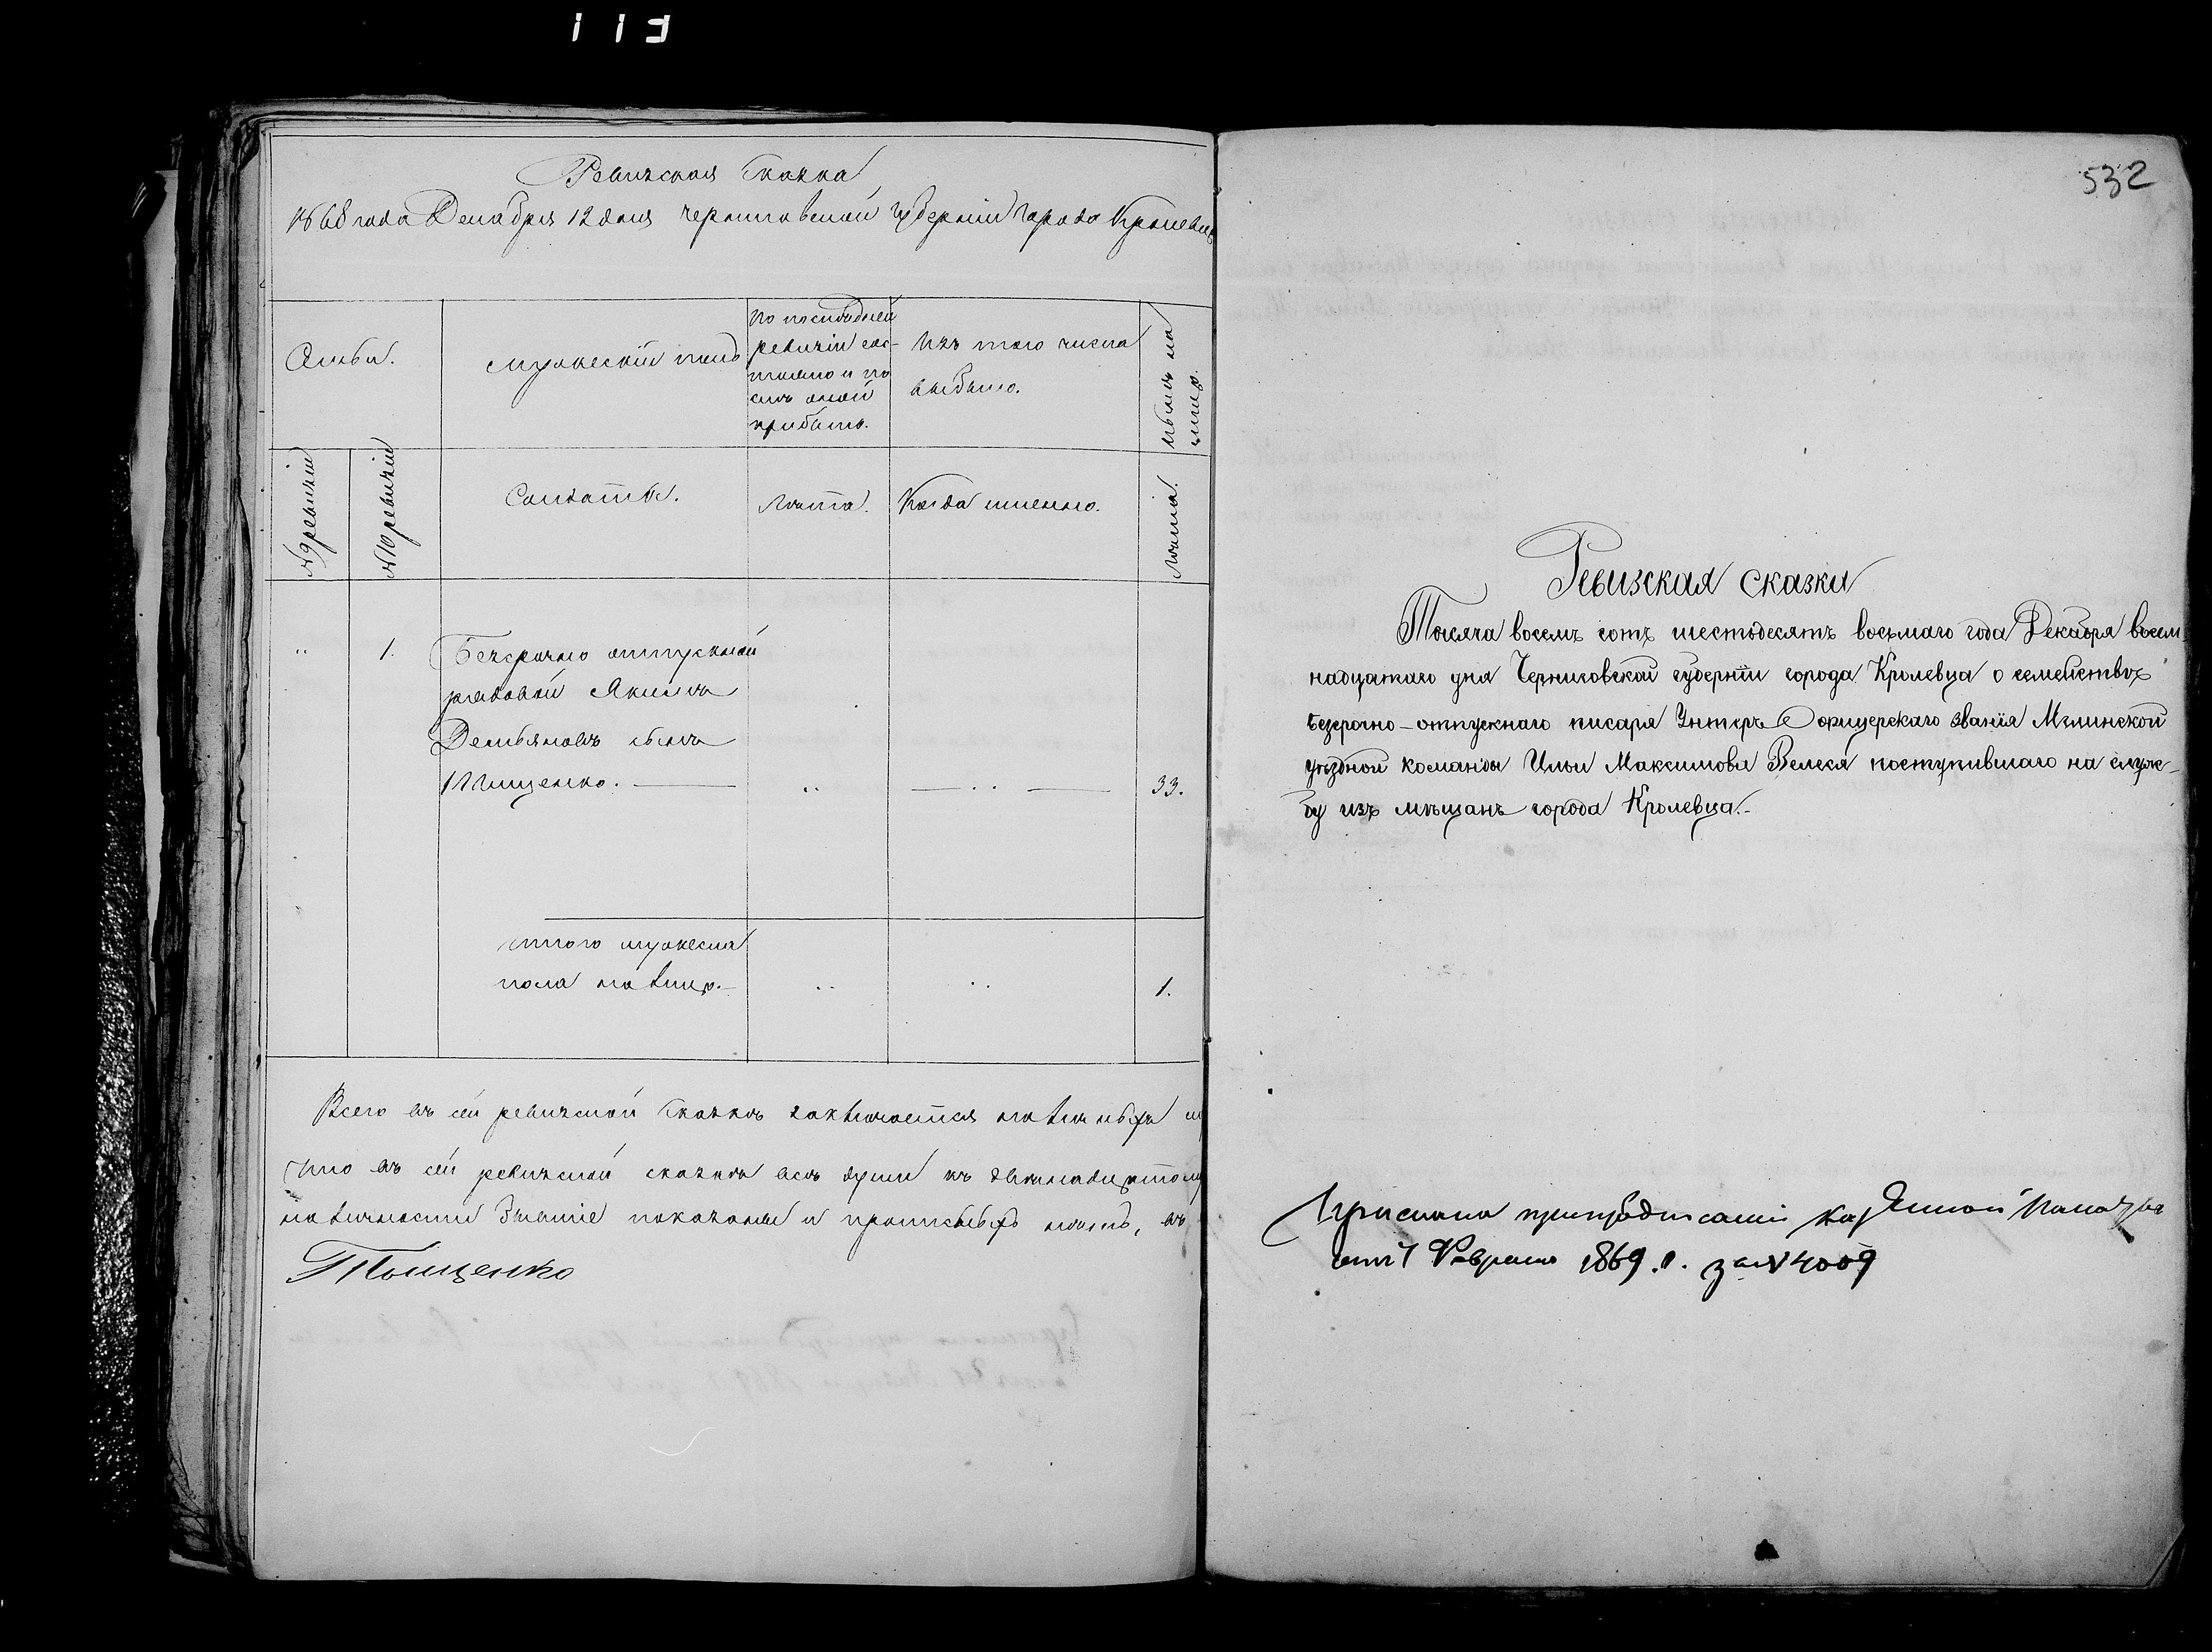 113
Ревизская Сказка
1868 года Декабря 12 дня Черниговской Губерніи города Кролевц
Семьи.
Мужескій полъ
По последней
ревизіи сос-
тояло и по
слѣ оной
прибыло.
Изъ того числа
выбыло.
Нынѣ на
лицо.
№ 9 ревизіи
№ 10 ревизіи
Солдаты.
Лѣта.
Когда именно.
Лѣта.
"
1.
Безсрочно отпускной
рядовой Якимъ
Демьяновъ сынъ
Пищенко.
33.
Итого мужеска
пола на лицо.
1.
Всего въ сей ревизской Сказкѣ заключается на
Что въ сей ревизской сказкѣ всѣ души къ
на личности показаны и
532
Ревизская сказка
Тысяча восемъ сотъ шестьдесятъ восьмаго года Декабря восем-
надцатаго дня Черниговской губерніи города Кролевца о семействѣ
безсрочно-отпускнаго писаря Унтеръ Офицерскаго званія Мглинской
уѣздной команды Ильи Максимова Велеся поступившаго на служ-
бу изъ мѣщанъ города Кролевца.-
Прислана при предписаніи Казенной Палаты
отъ 7 Февраля 1869 г. за № 4009